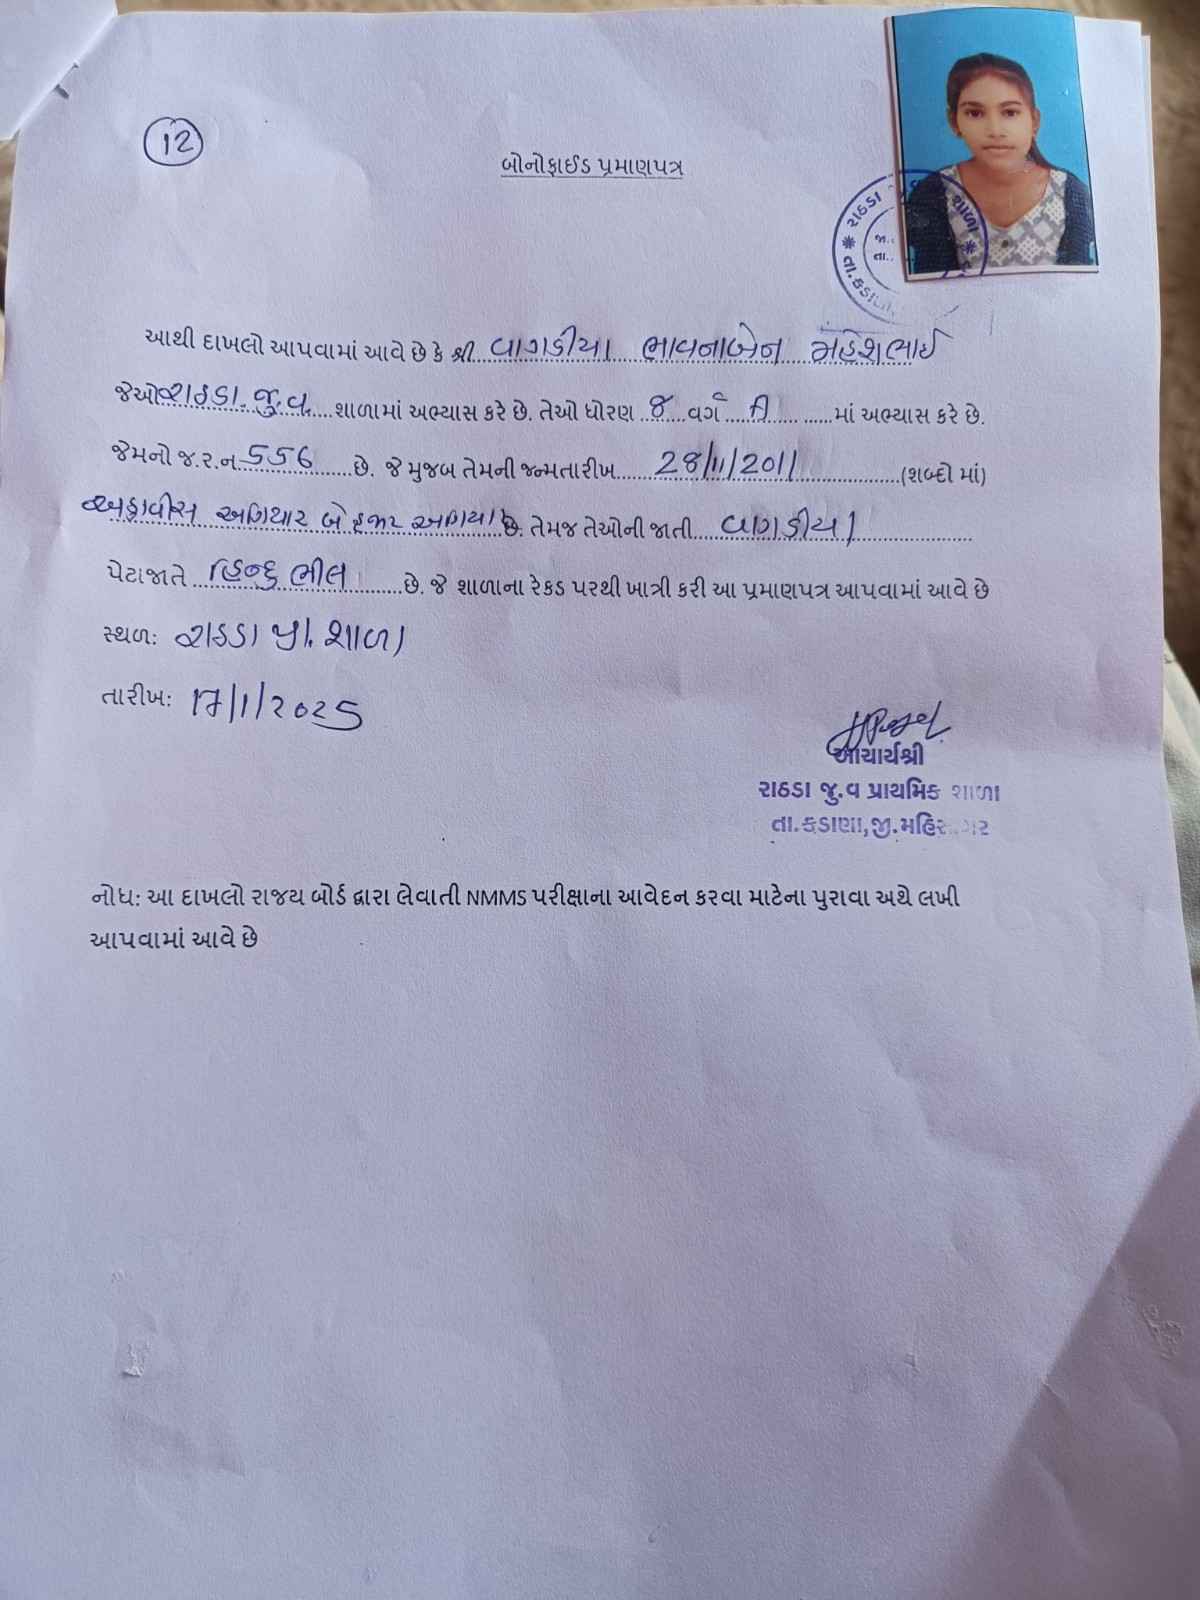 12
બોનોફાઈડ પ્રમાણપત્ર
રાઠડા
શાળા
તા.કડાણા
જા.
તા.
આથી દાખલો આપવામાં આવે છે કે શ્રી વાગડીયા ભાવનાબેન મહેશભાઈ
જેઓ રાઠડા.જુ.વ. શાળામાં અભ્યાસ કરે છે. તેઓ ધોરણ ૪ વર્ગ માં અભ્યાસ કરે છે.
જેમનો જ.ર.ન 556 છે. જે મુજબ તેમની જન્મતારીખ 28/11/2011 (શબ્દો માં)
અઠ્ઠાવીસ અગિયાર બે હજાર અગિયાર છે. તેમજ તેઓની જાતી વાગડીયા
પેટાજાતે હિન્દુ ભીલ છે. જે શાળાના રેકડ પરથી ખાત્રી કરી આ પ્રમાણપત્ર આપવામાં આવે છે
સ્થળ: રાઠડા પ્રા. શાળા
તારીખ: 17/1/2025
આચાર્યશ્રી
રાઠડા જુ.વ પ્રાથમિક શાળા
તા.કડાણા,જી.મહિસાગર
નોધ: આ દાખલો રાજય બોર્ડ દ્વારા લેવાતી NMMS પરીક્ષાના આવેદન કરવા માટેના પુરાવા અથે લખી
આપવામાં આવે છે